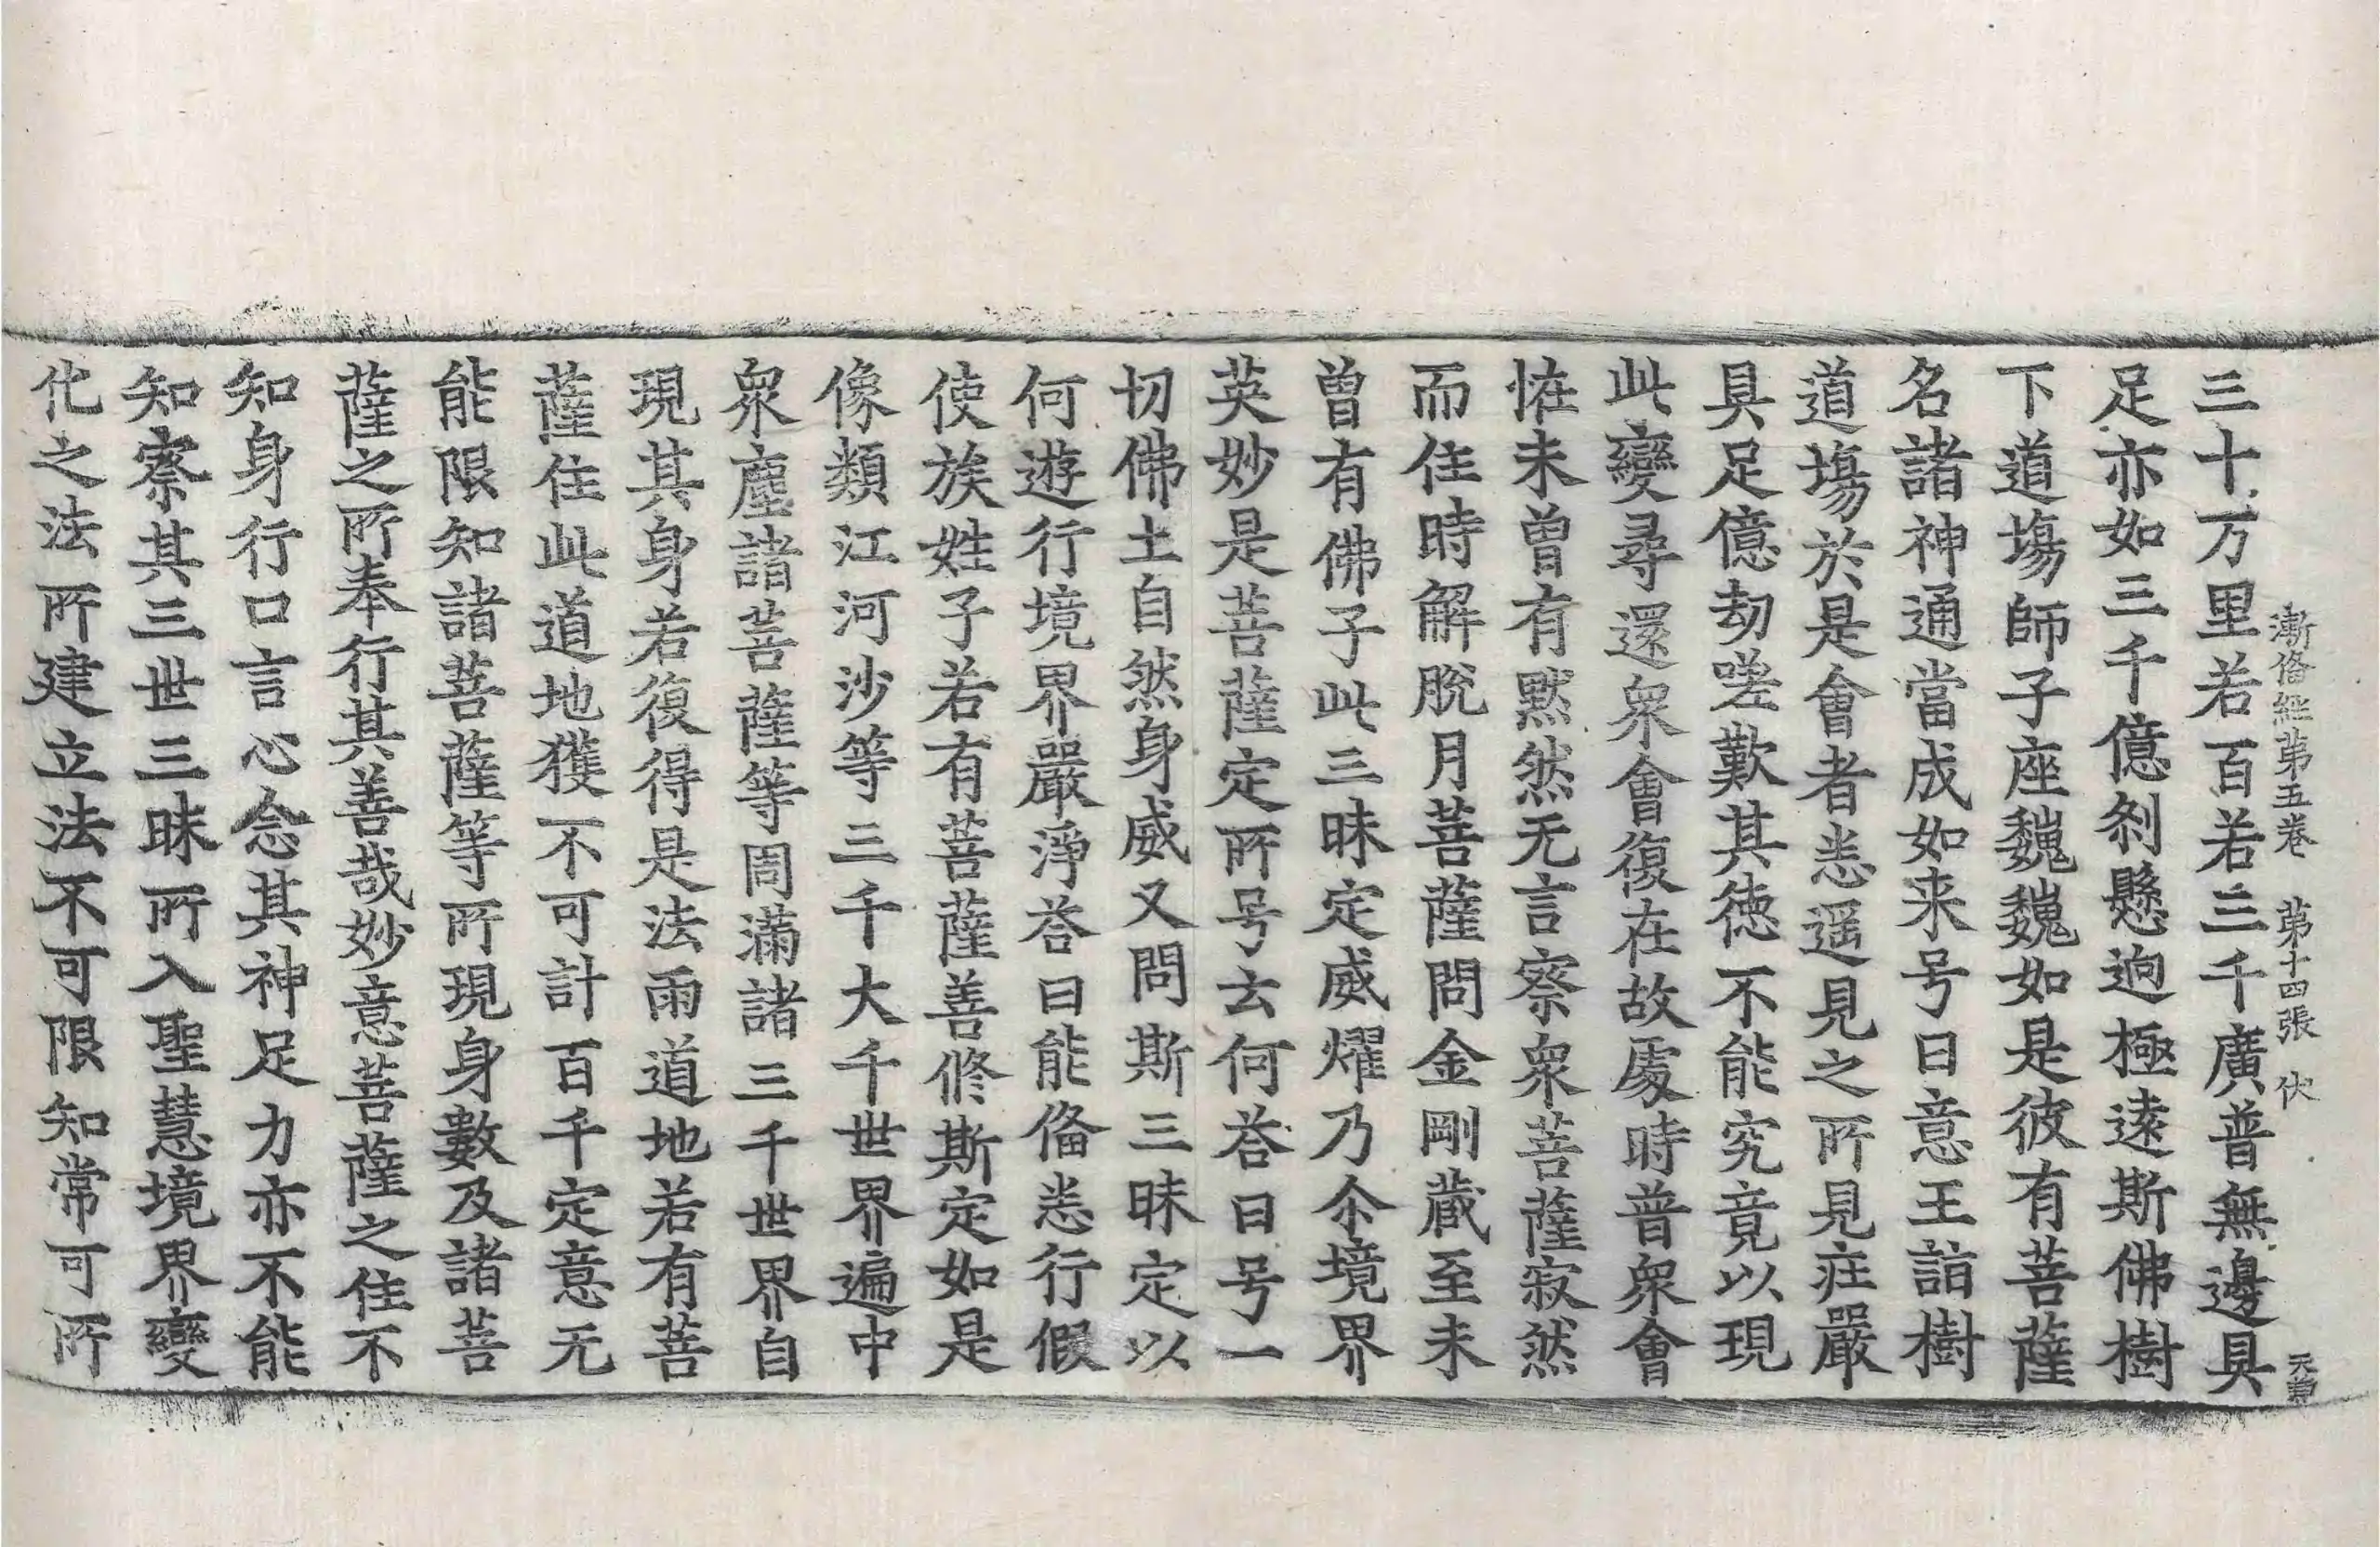 漸俻經第五卷　第十四張　伏
三十万里若百若三千廣普無邊具
足亦如三千億刹懸逈極遠斯佛樹
下道場師子座巍巍如是彼有菩薩
名諸神通當成如来号曰意王詣樹
道場於是會者悉遥見之所見庄嚴
具足億劫嗟歎其德不能究竟以現
此變尋還衆會復在故處時普衆會
恠未曾有黙然无言察衆菩薩寂然
而住時解脫月菩薩問金剛蔵至未
曾有佛子此三昧定威耀乃尒境界
英妙是菩薩定所号云何荅曰号一
切佛土自然身威又問斯三昧定以
何遊行境界嚴淨荅曰能俻悉行假
使族姓子若有菩薩善修斯定如是
像類江河沙等三千大千世界遍中
衆塵諸菩薩等周滿諸三千世界自
現其身若復得是法雨道地若有菩
薩住此道地獲不可計百千定意无
能限知諸菩薩等所現身數及諸菩
薩之所奉行其善哉妙意菩薩之住不
知身行口言心念其神足力亦不能
知察其三世三昧所入聖慧境界變
化之法所建立法不可限知常可所